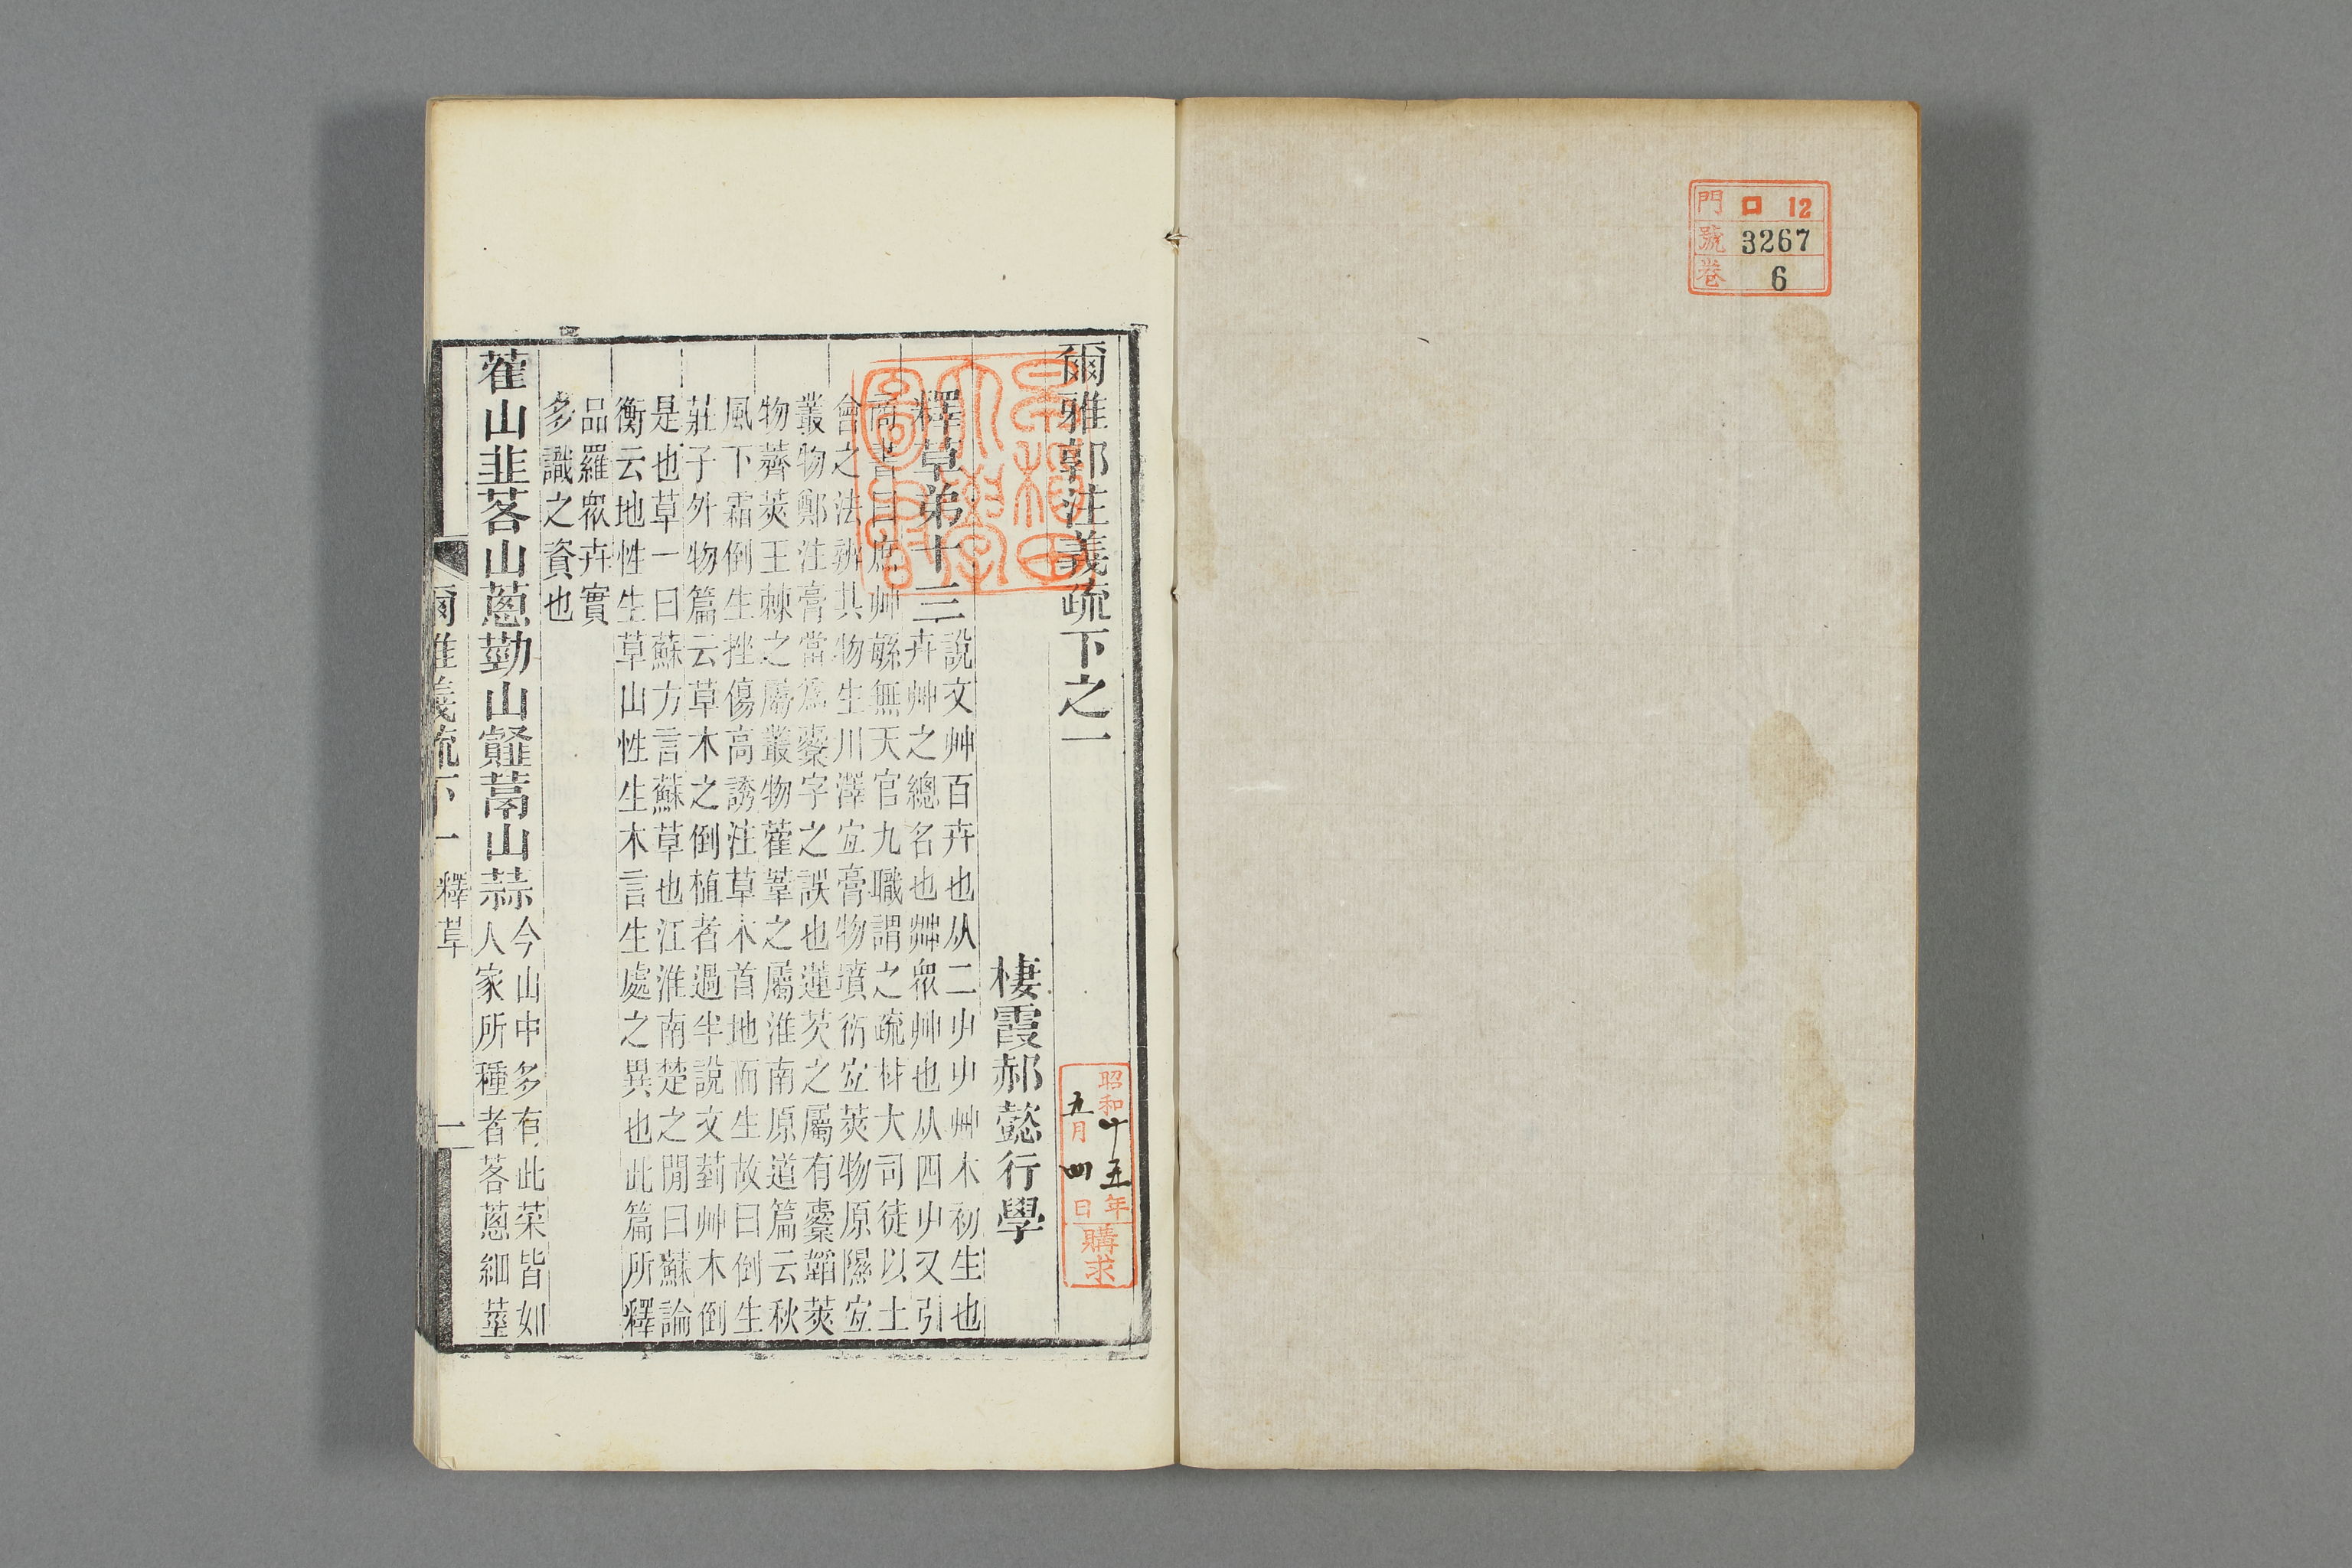 門 ロ 12
號 3267
卷 6
爾雅郭注義疏下之一
棲霞郝懿行學
釋草弟十三
說文艸百卉也从二屮屮艸木初生也
卉艸之總名也茻眾艸也从四屮又引
商書曰庶艸緐無天官九職謂之疏材大司徒以土
會之法辨其物生川澤宐膏物墳衍宐莢物原隰宐
叢物鄭注膏當爲櫜字之誤也蓮芡之屬有櫜韜莢
物薺莢王棘之屬叢物雚葦之屬淮南原道篇云秋
風下霜倒生挫傷高誘注草木首地而生故曰倒生
莊子外物篇云草木之倒植者過半說文菿艸木倒
是也草一曰蘇方言蘇草也江淮南楚之閒曰蘇論
衡云地性生草山性生木言生處之異也此篇所釋
品羅眾卉實
多識之資也
藿山韭茖山蔥葝山䪥蒚山蒜
今山中多有此菜皆如
人家所種者茖蔥細莖
爾雅義疏下一 釋草 一
早稻田大學圖書
昭和十五年
五月四日
購求